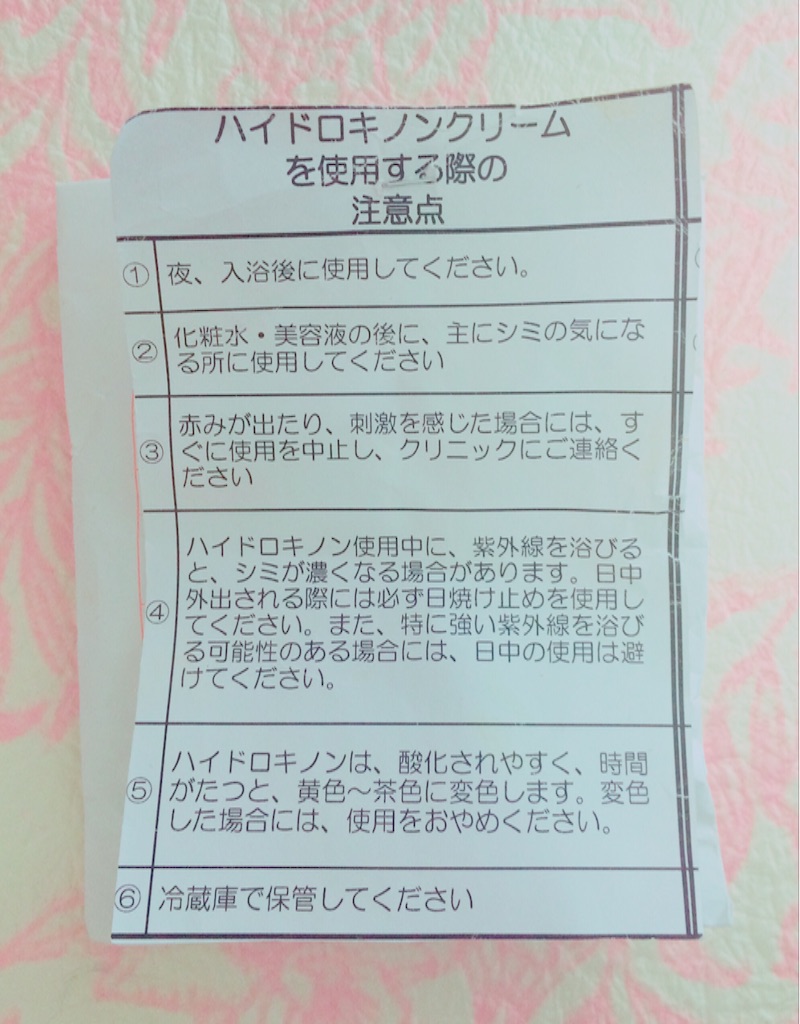 ハイドロキノンクリーム
を使用する際の
注意点
① 夜、入浴後に使用してください。
② 化粧水・美容液の後に、主にシミの気にな
る所に使用してください
③ 赤みが出たり、刺激を感じた場合には、す
ぐに使用を中止し、クリニックにご連絡く
ださい
④ ハイドロキノン使用中に、紫外線を浴びる
と、シミが濃くなる場合があります。日中
外出される際には必ず日焼け止めを使用し
てください。また、特に強い紫外線を浴び
る可能性のある場合には、日中の使用は避
けてください。
⑤ ハイドロキノンは、酸化されやすく、時間
がたつと、黄色～茶色に変色します。変色
した場合には、使用をおやめください。
⑥ 冷蔵庫で保管してください